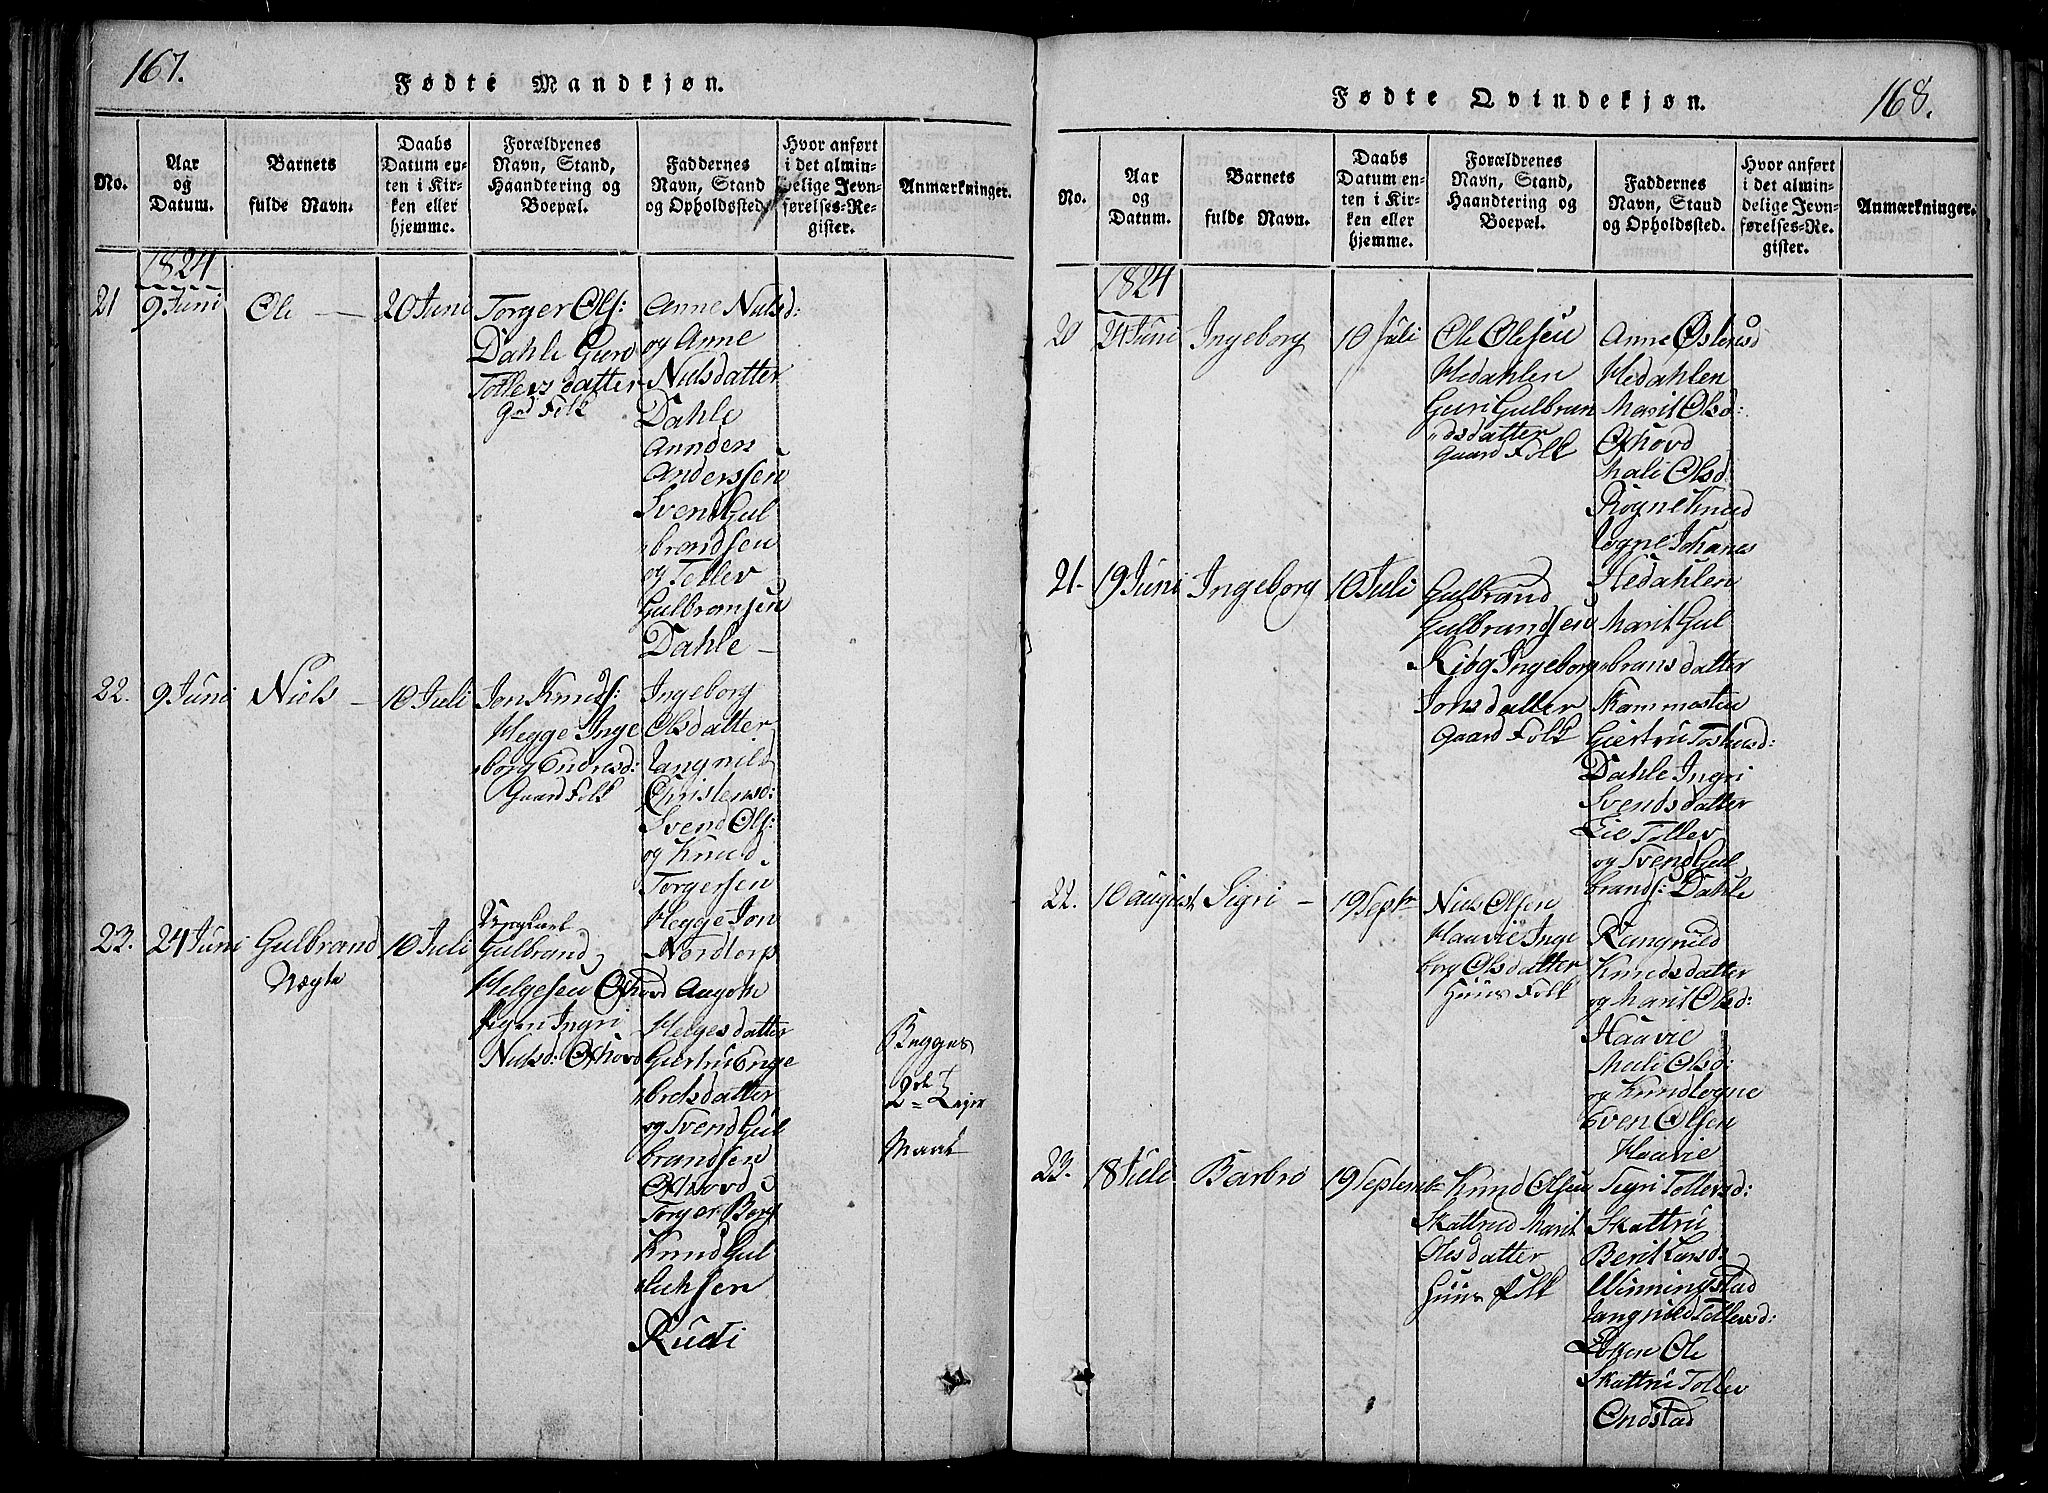 167.
Fødte Mandkjøn.
No.
Aar
og
Datum.
Barnets
fulde Navn.
Daabs
Datum en-
ten i Kir-
ken eller
hjemme.
Forældrenes
Navn, Stand,
Haandtering og
Boepæl.
Faddernes
Navn, Stand
og Opholdssted.
Hvor anført
i det almin-
delige Jevn-
førelses-Re-
gister.
Anmærkninger.
1824
21 9 Juni Ole — 20 Juni
Torger Ols:
Dahle Guro
Tollevsdatter
Grd Folk
Anne Nielsd:
og Anne
Nielsdatter
Dahle
Annders
Anderssen
Svend Gul
brandsen
og Tollev
Gulbransen
Dahle —
22. 9 Juni Niels — 10 Juli
Jon Knuds:
Hegge Inge
borg Endresd:
Gaard Folk
Ingeborg
Olsdatter
Langnild
Christensd:
Svend Ols:
og Knud
Torgersen
Hegge Jon
Nordtorp
23. 24 Juni Gulbrand 10 Juli
Uægte
Ungkarl
Gulbrand
Helgesen Oxhovd
Pigen Ingri
Nielsd: Oxhovd
Helgesdatter
Giertru Enge
bretsdatter
og Svend Gul
brandsen
Oxhovd
Torger Borg
Knud Gul
licksen
Rudi
Begges
2de Leier
Maal
168.
Fødte Qvindekjøn.
No.
Aar
og
Datum.
Barnets
fulde Navn.
Daabs
Datum en-
ten i Kir-
ken eller
hjemme.
Forældrenes
Navn, Stand,
Haandtering og
Boepæl.
Faddernes
Navn, Stand
og Opholdssted.
Hvor anført
i det almin-
delige Jevn-
førelses-Re-
gister.
Anmærkninger.
1824
20 24 Juni Ingeborg 10 Juli
Ole Olesen
Hedahlen
Guri Gulbran
dsdatter
Gaard Folk
Anne Østensd
Hedahlen
Marit Olsd:
Oxhovd
Mali Olsd:
Rogne Knud
Logne Johanes
Hedahlen
21. 19 Juni Ingeborg 10 Juli
Gulbrand
Gulbrandsen
Kiøg Ingeborg
Jonsdatter
Gaard Folk
Marit Gul
bransdatter
Kammastuen
Giertru Tostensd:
Dahle Ingri
Svendsdatter
Lie Tollev
og Svend Gul
brands: Dahle
22. 10 august Sigri — 19 Septr
Niels Olsen
Haavie Inge
borg Olsdatter
Huus Folk
Rangnild
Knudsdatter
og Marit Olsd:
Haavie
Mali Olsd:
og Knud Logne
Even Olsen
Haavie
23. 18 Juli Barbro 19 Septembr
Knud Olsen
Skattrud Marit
Olesdatter
Huus Folk
Sigri Tollevsd:
Skattru
Berit Larsd:
Winningstad
Langnild Tollevsd:
Lokken Ole
Skattru Tollev
Ondstad